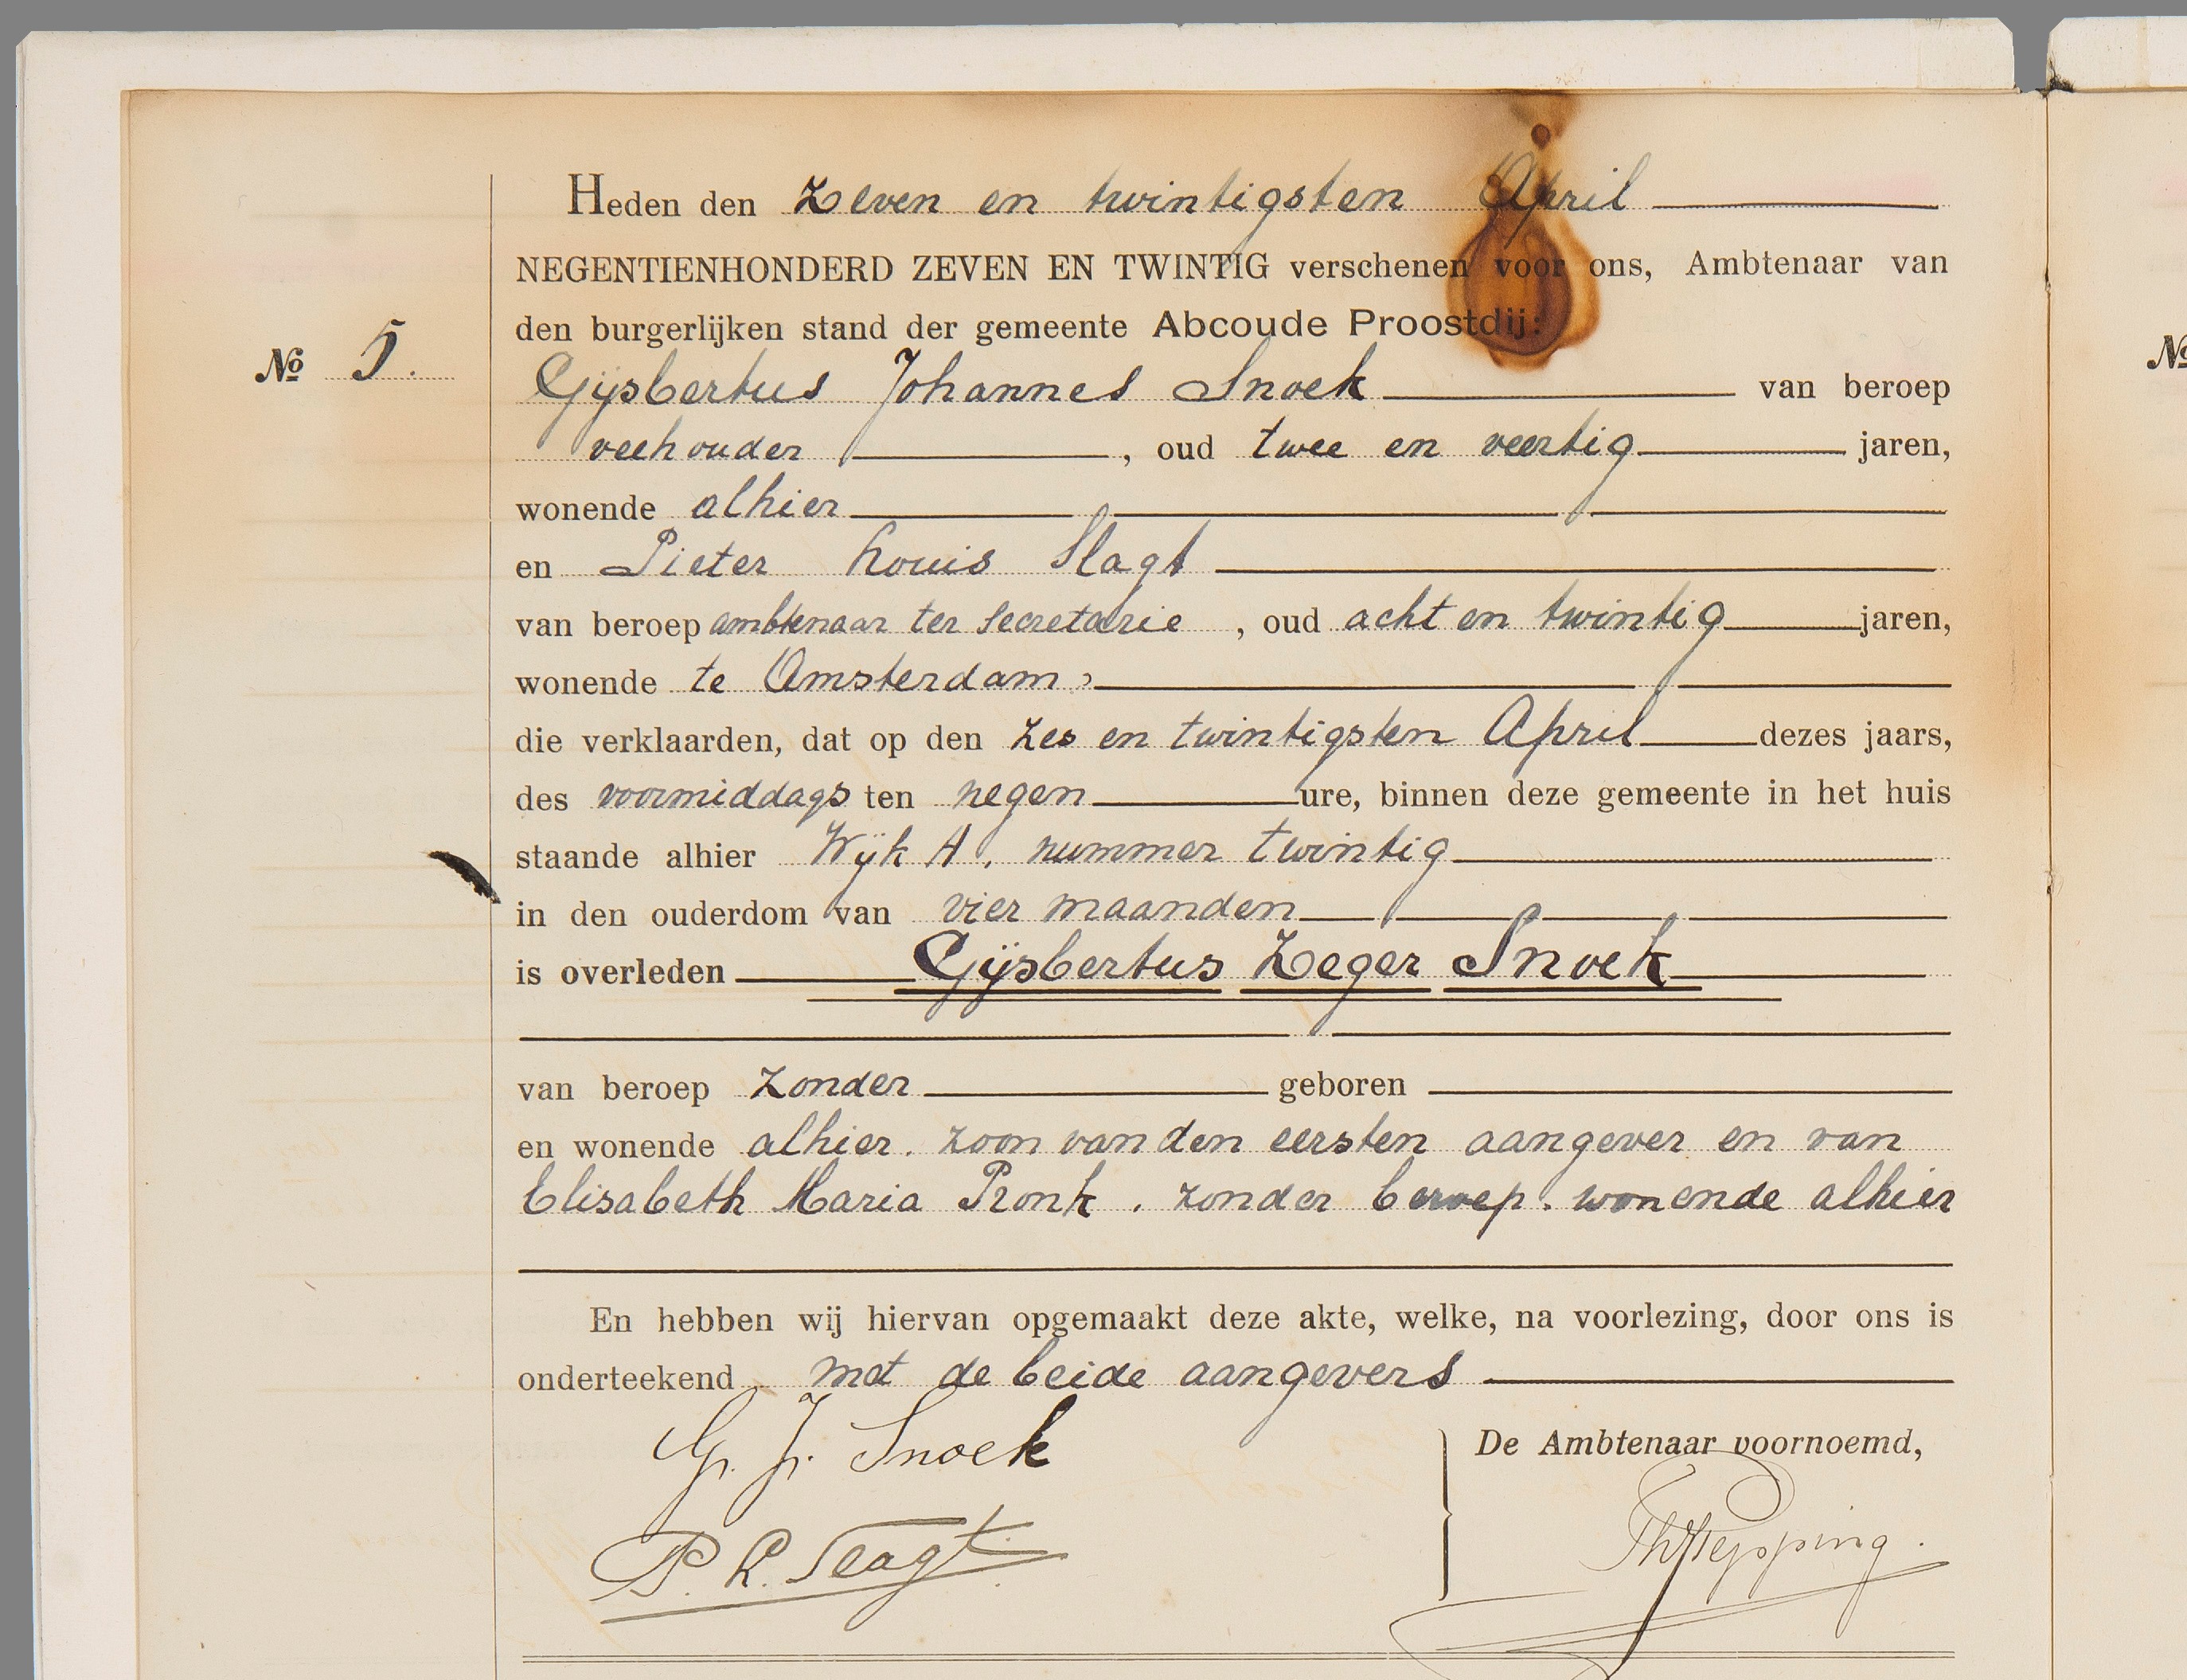 Heden den zeven en twintigsten April
NEGENTIENHONDERD ZEVEN EN TWINTIG verschenen voor ons, Ambtenaar van
den burgerlijken stand der gemeente Abcoude Proostdij:
No 5.
Gijsbertus Johannes Snoek van beroep
veehouder, oud twee en veertig jaren,
wonende alhier
en Pieter Louis Slagt
van beroep ambtenaar ter secretarie, oud acht en twintig jaren,
wonende te Amsterdam,
die verklaarden, dat op den zes en twintigsten April dezes jaars,
des voormiddags ten negen ure, binnen deze gemeente in het huis
staande alhier Wijk A, nummer twintig
in den ouderdom van vier maanden
is overleden Gijsbertus Zeger Snoek
van beroep zonder geboren
en wonende alhier, zoon van den eersten aangever en van
Elisabeth Maria Pronk, zonder beroep, wonende alhier
En hebben wij hiervan opgemaakt deze akte, welke, na voorlezing, door ons is
onderteekend met de beide aangevers
G. J. Snoek
De Ambtenaar voornoemd,
P. L. Slagt
No